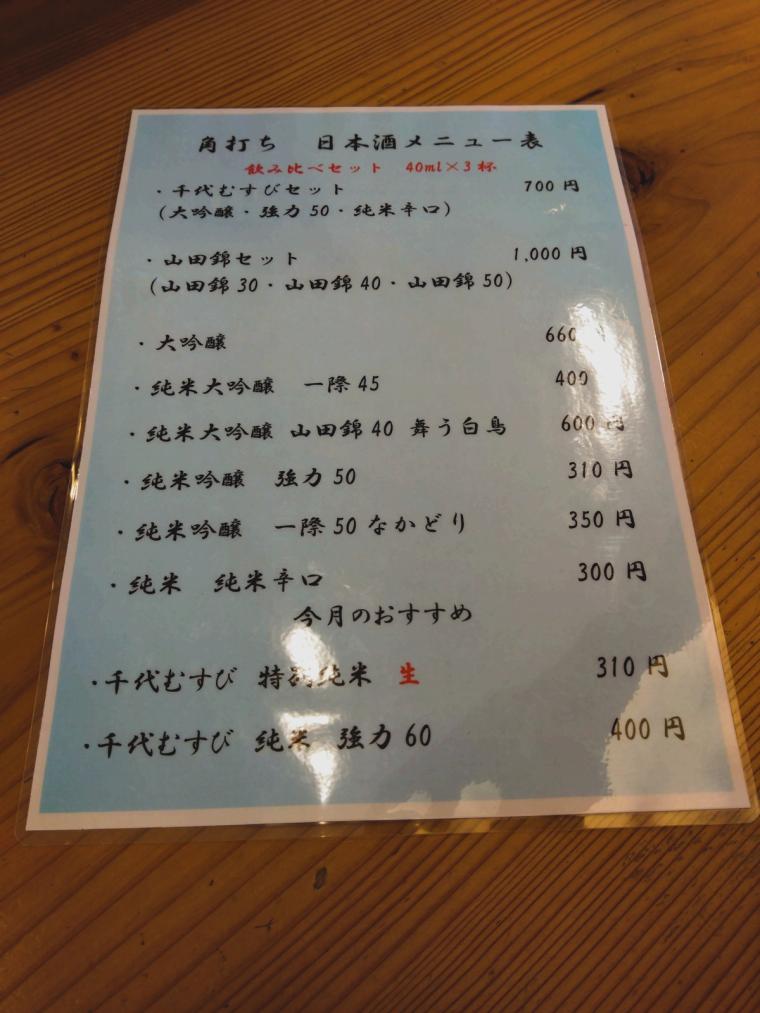 角打ち　日本酒メニュー表
飲み比べセット　40ml×3杯
・千代むすびセット　700円
（大吟醸・強力50・純米辛口）
・山田錦セット　1,000円
（山田錦30・山田錦40・山田錦50）
・大吟醸　660
・純米大吟醸　一際45　400
・純米大吟醸 山田錦40 舞う白鳥　600円
・純米吟醸　強力50　310円
・純米吟醸　一際50なかどり　350円
・純米　純米辛口　300円
今月のおすすめ
・千代むすび 特別純米 生　310円
・千代むすび 純米 強力60　400円